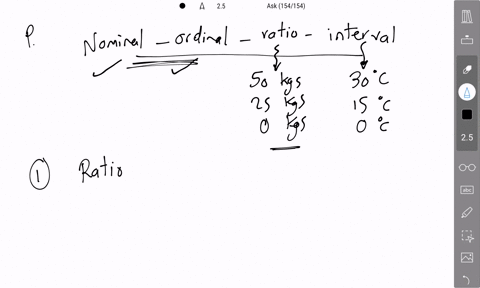 2.5 Ask (154/154)
P. Nominal - ordinal - ratio - interval
50 kgs 30°C
25 kgs 15°C
0 kgs 0°C
1 Ratio
2.5
abc